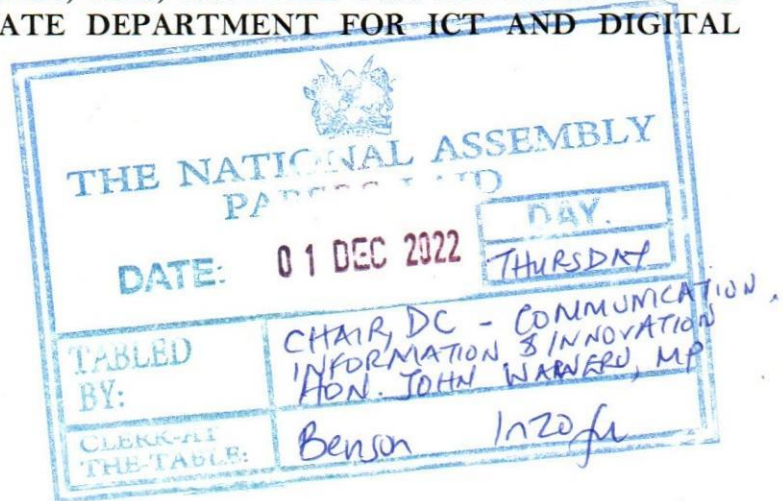 ATE DEPARTMENT FOR ICT AND DIGITAL
THE NATIONAL ASSEMBLY
PAPERS LAID
DATE: 01 DEC 2022
DAY.
THURSDAY
TABLED BY:
CHAIR, DC - COMMUNICATION,
INFORMATION & INNOVATION
HON. JOHN MP
CLERK-AT
THE-TABLE:
Benson Inzofu